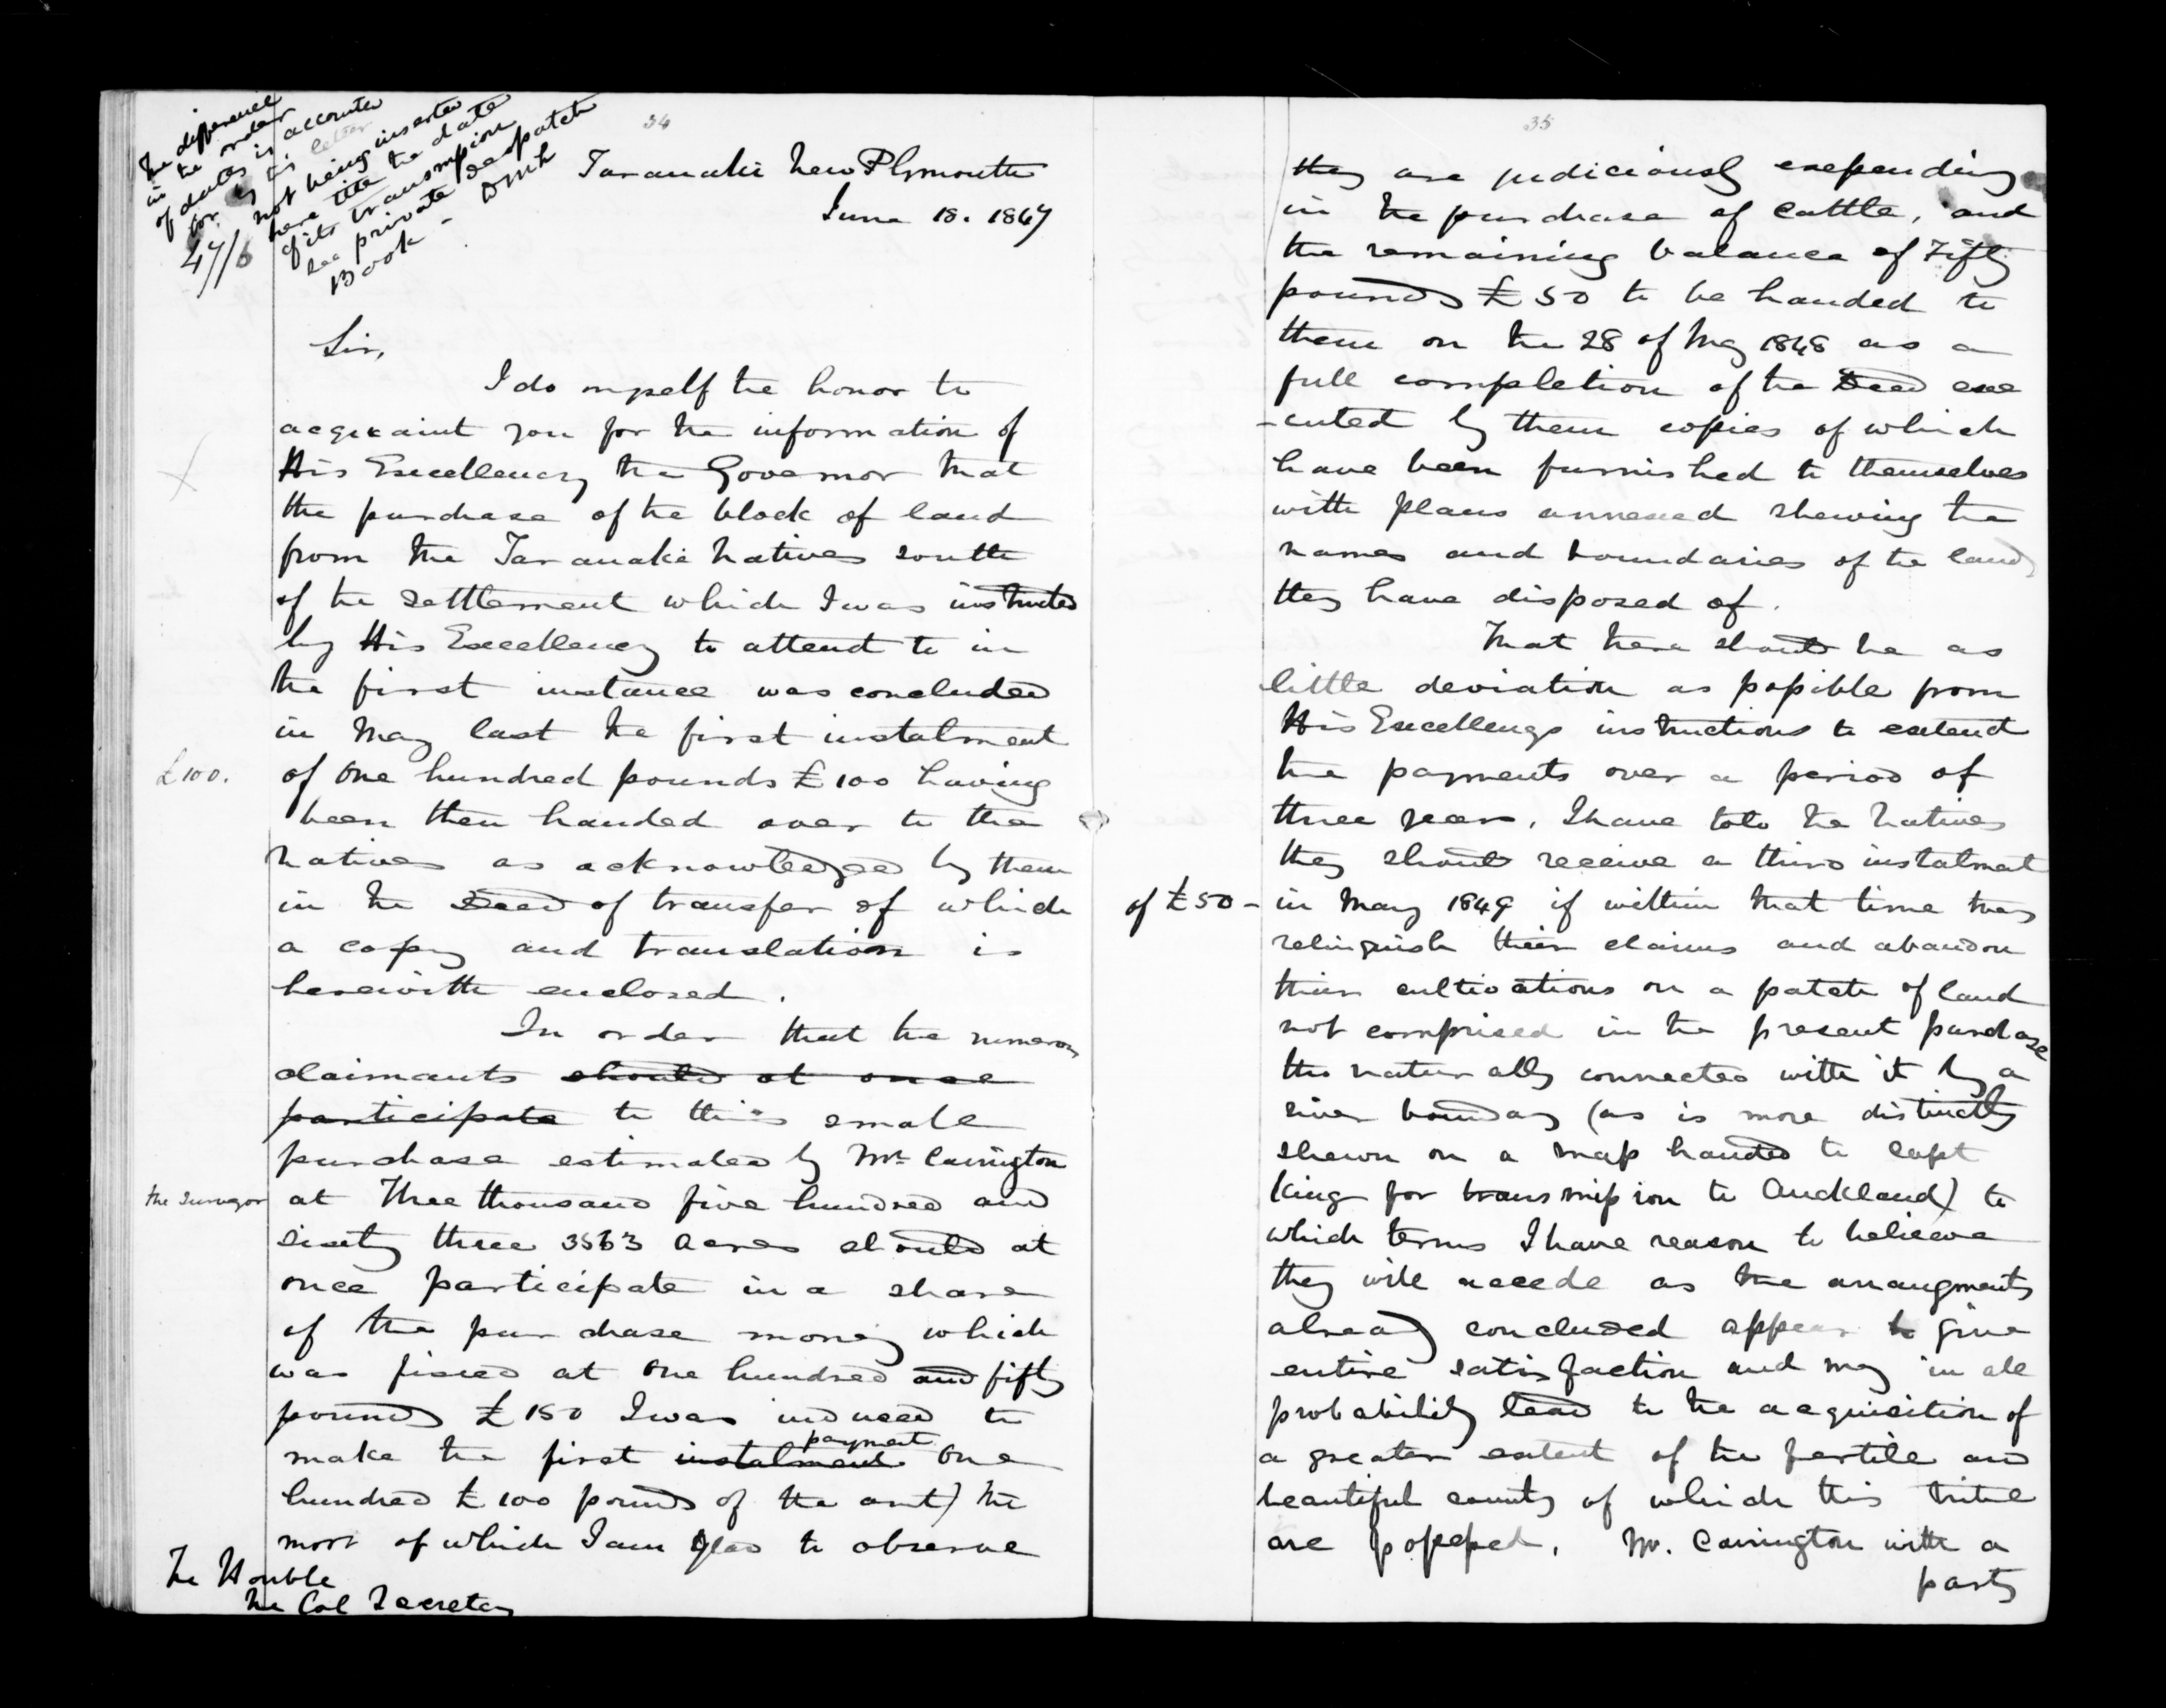 34
The difference
in the order
of dates is accounted
for by this letter
not being inserted
here till the date
of its transmission
see private despatch
Book - DMcL
47/6
Taranaki New Plymouth
June 18. 1847
Sir,
I do myself the honor to
acquaint you for the information of
His Excellency the Governor that
the purchase of the block of land
from the Taranaki natives south
of the settlement which I was instructed
by His Excellency to attend to in
the first instance was concluded
in May last the first instalment
£100.
of One hundred pounds £100 having
been then handed over to the
natives as acknowledged by them
in the Deed of transfer of which
a copy and translation is
herewith enclosed.
In order that the numerous
claimants should at once
participate to this small
purchase estimated by Mr Carrington
the Surveyor
at Three thousand five hundred and
sixty three 3563 acres should at
once participate in a share
of the purchase money which
was fixed at One hundred and fifty
pounds £150 I was induced to
make the first instalment payment One
hundred £100 pounds of the amt) the
most of which I am glad to observe
The Honble
The Col Secretary
35
they are judiciously expending
in the purchase of cattle, and
the remaining balance of Fifty
pounds £50 to be handed to
them on the 28 of May 1848 as a
full completion of the Deed exe
-cuted by them copies of which
have been furnished to themselves
with plans annexed shewing the
names and boundaries of the land
they have disposed of.
That there should be as
little deviation as possible from
His Excellencys instructions to extend
the payments over a period of
three years, I have told the Natives
they should receive a third instalment
of £50 -
in May 1849 if within that time they
relinquish their claims and abandon
their cultivations on a patch of land
not comprised in the present purchase
tho naturally connected with it by a
river boundary (as is more distinctly
shewn on a map handed to Capt
King for transmission to Auckland) to
which terms I have reason to believe
they will accede as the arrangments
already concluded appear to give
entire satisfaction and may in all
probability lead to the acquisition of
a greater extent of the fertile and
beautiful country of which this tribe
are possessed. Mr. Carrington with a
party